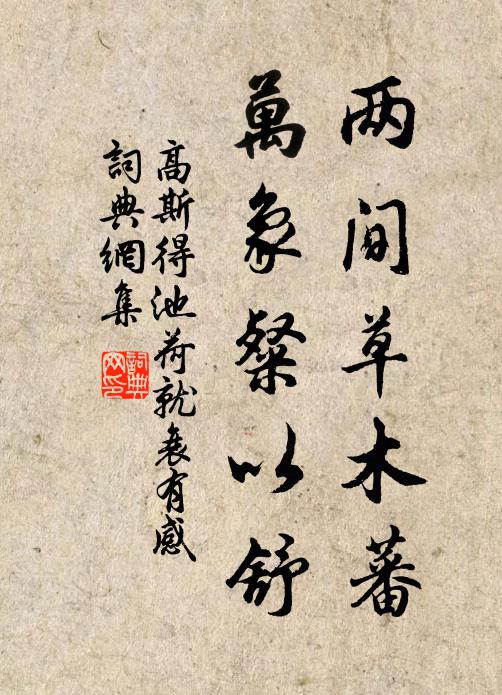 两間草木蕃
萬象粲以舒
高斯得池荷就衰有感
詞典網集
詞典网印